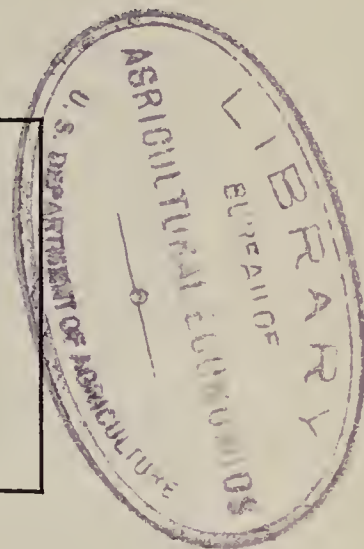 LIBRARY
BUREAU OF
AGRICULTURAL ECONOMICS
U. S. DEPARTMENT OF AGRICULTURE